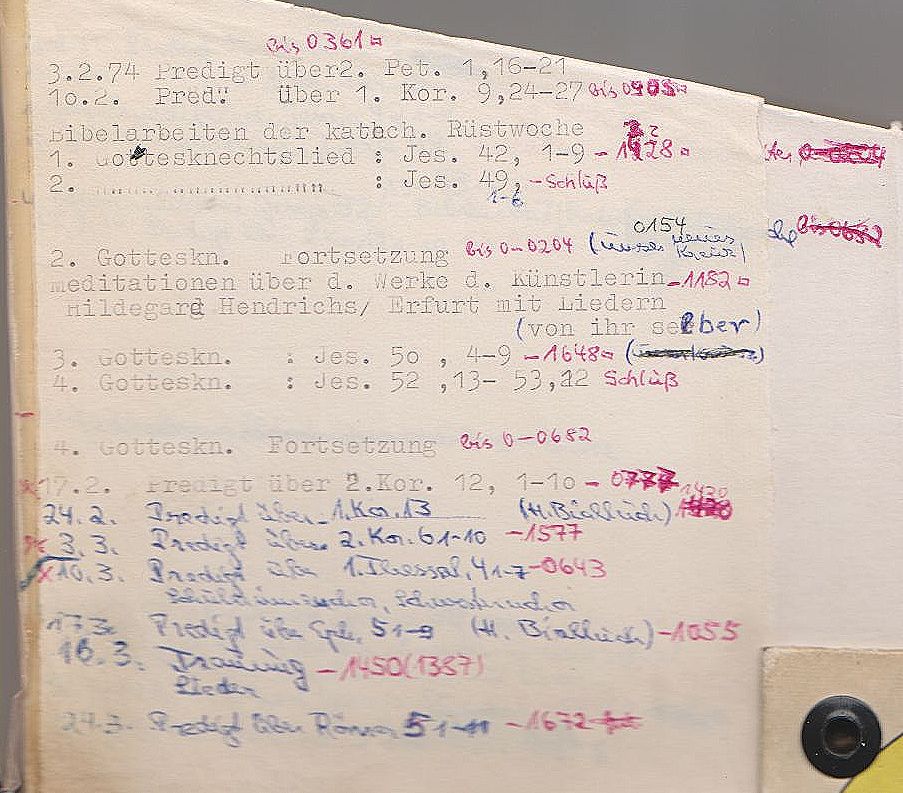 bis 0361
3.2.74 Predigt über2. Pet. 1,16-21
1o.2. Pred." über 1. Kor. 9,24-27 bis 0908
Bibelarbeiten der katech. Rüstwoche
1. Gottesknechtslied : Jes. 42, 1-9 - 1228
2. ........................ : Jes. 49, - Schlüß
1-6
0154
2. Gotteskn. Fortsetzung bis 0-0204 (
Meditationen über d. Werke d. Künstlerin - 1182
Hildegard Hendrichs/ Erfurt mit Liedern
(von ihr selber)
3. Gotteskn. : Jes. 5o , 4-9 - 1648
4. Gotteskn. : Jes. 52 ,13- 53,12 Schlüß
4. Gotteskn. Fortsetzung bis 0-0682
17.2. Predigt über 2.Kor. 12, 1-1o - 0777
1430
24.2. Predigt über 1. Kor. 13 (H. Biallück)
3.3. Predigt über 2. Kor. 6 1-10 - 1577
10.3. Predigt über 1. Thessal. 4 1-7 - 0643
17.3. Predigt über Eph. 5 1-9 (H. Biallück) - 1055
16.3. Trauung - 1450 (1387)
Lieder
24.3. Predigt über Römer 5 1-11 - 1672
bis 0652